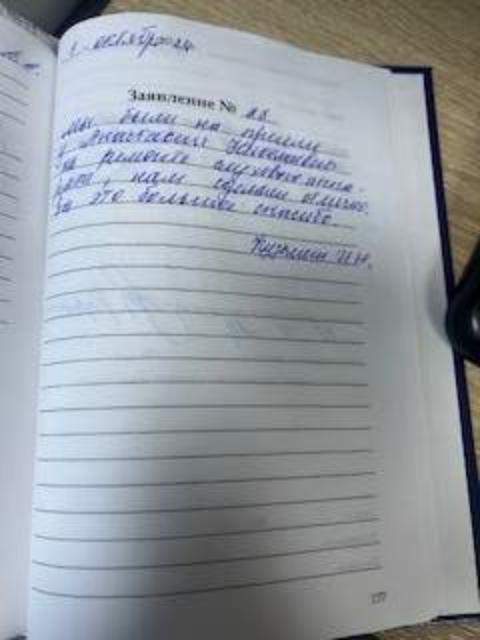 1 октября 24
Заявление №
Мы были на приеме
у Анастасии
на ремонте слухового аппа-
рата, нам сделали отлично.
За это большое спасибо.
И.Н.